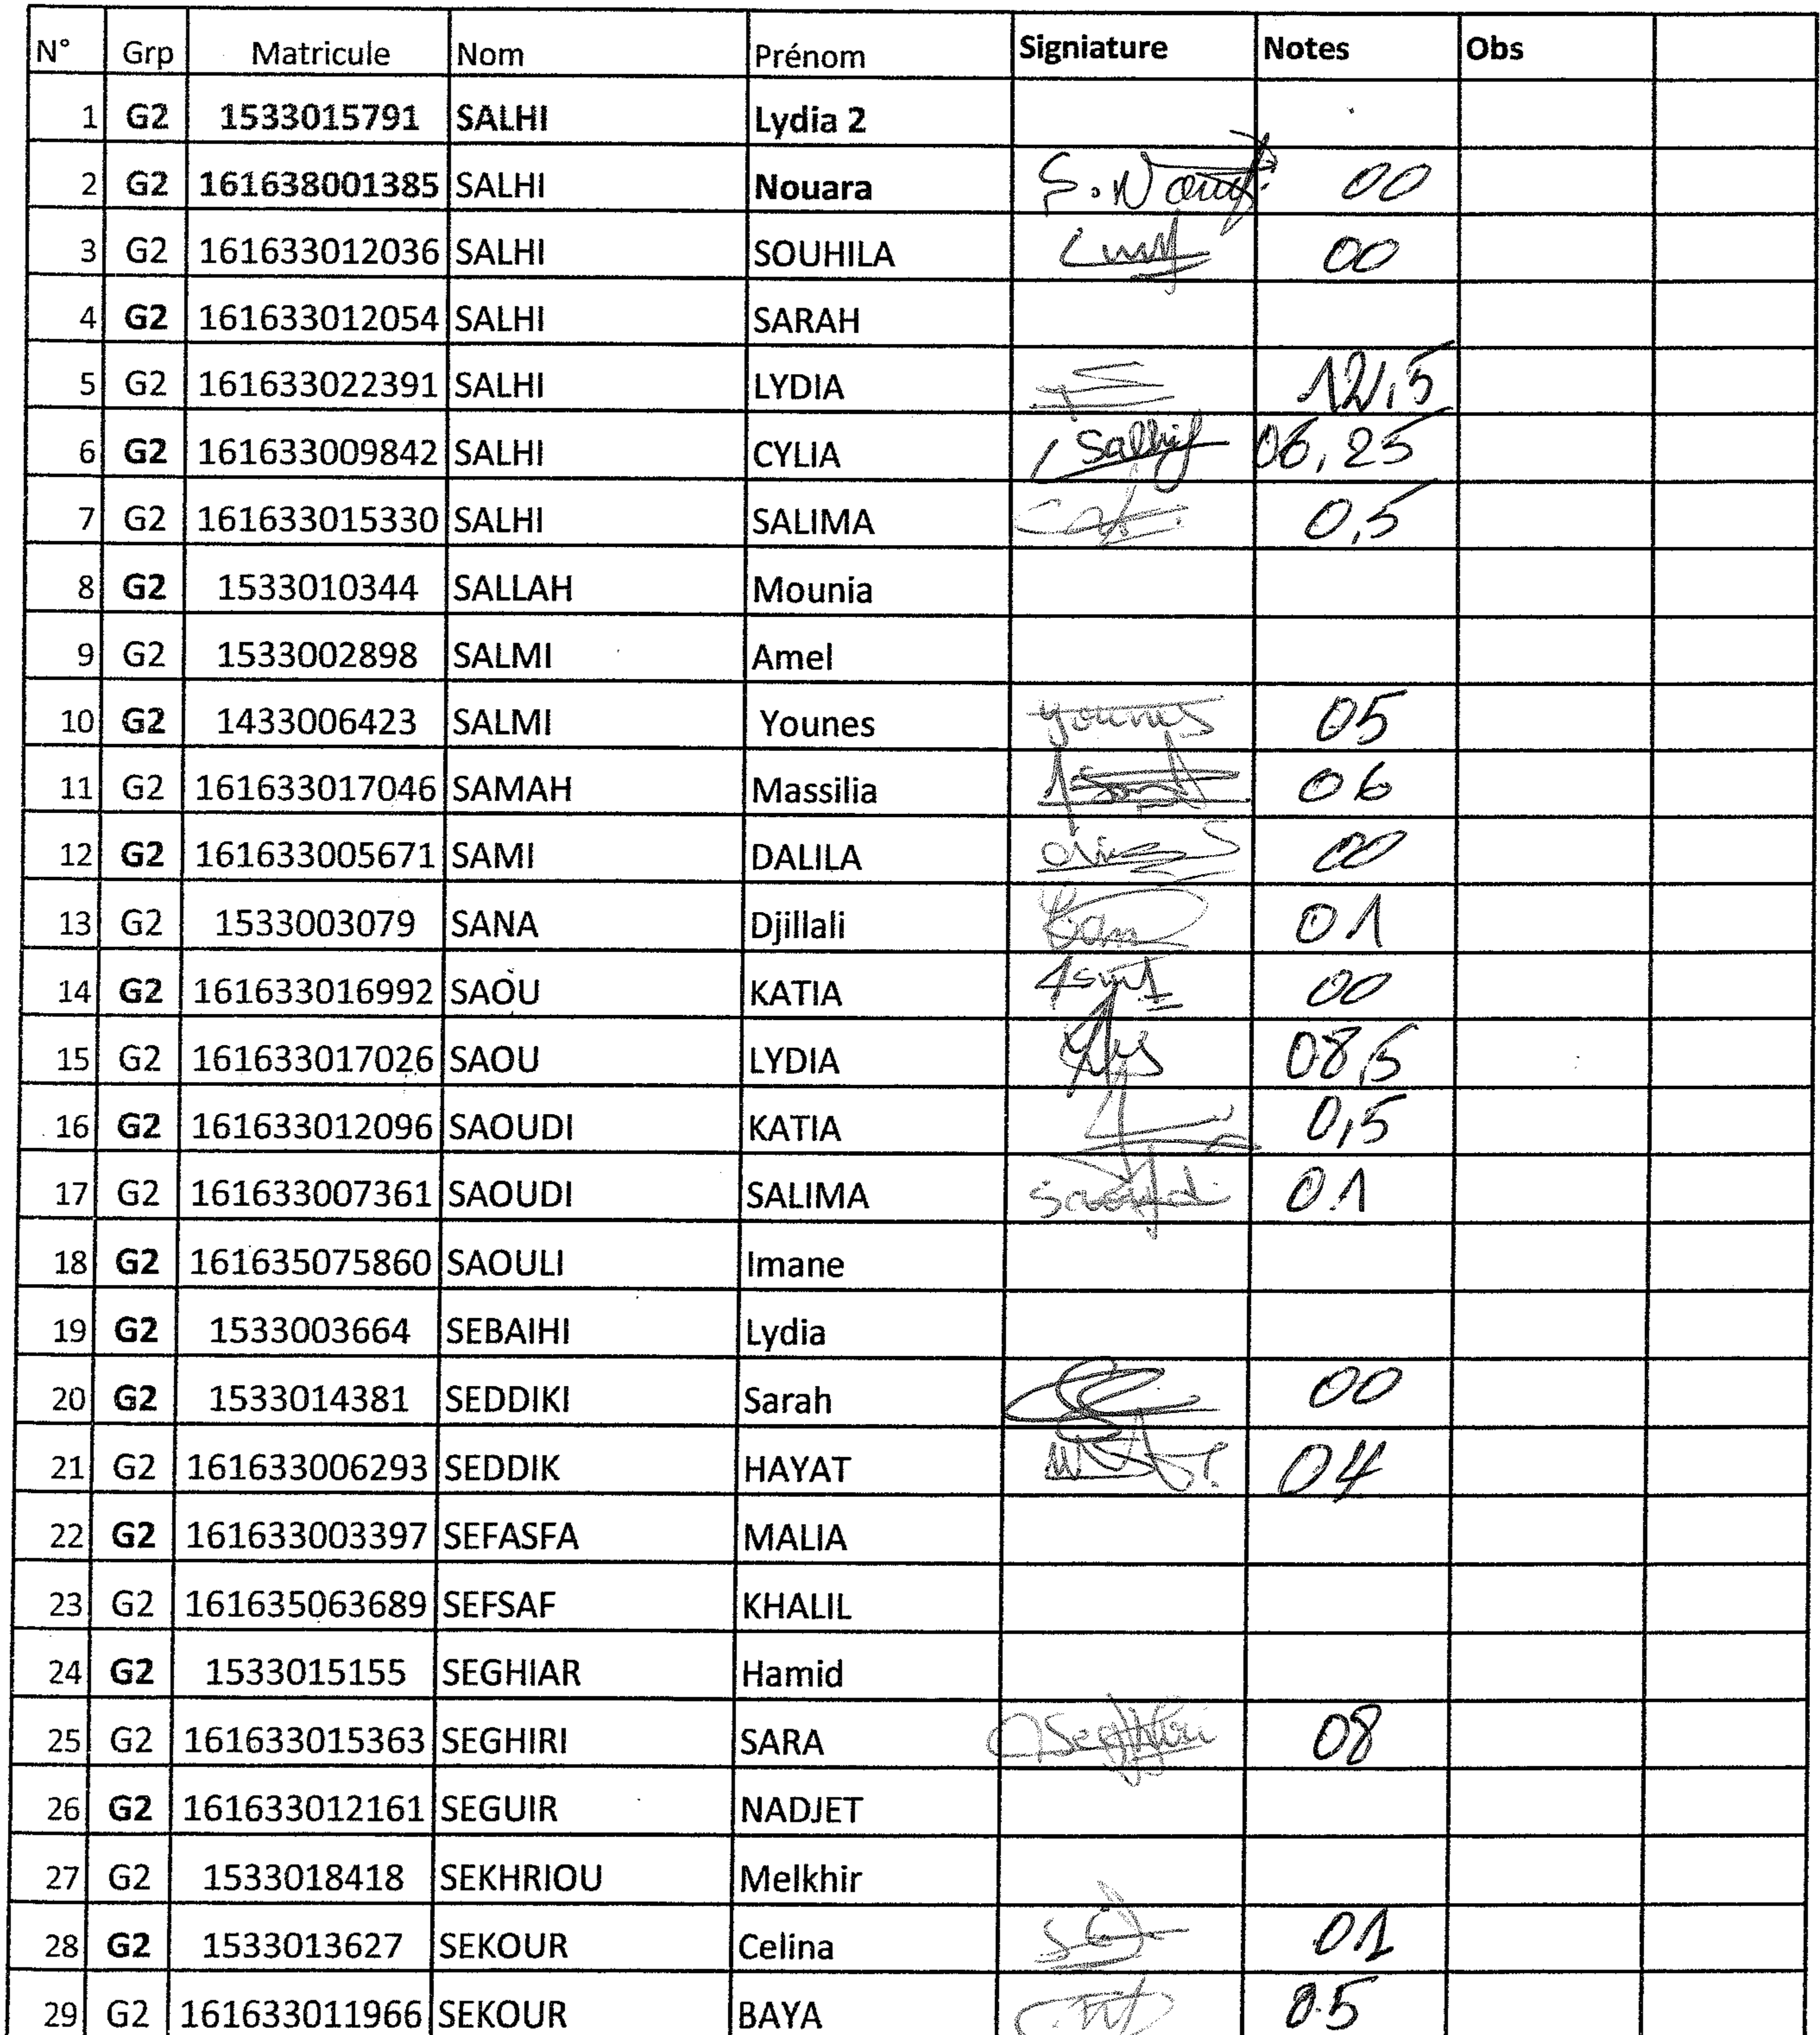 N° Grp Matricule Nom Prénom Signiature Notes Obs
1 G2 1533015791 SALHI Lydia 2
2 G2 161638001385 SALHI Nouara S. Nouara 00
3 G2 161633012036 SALHI SOUHILA 00
4 G2 161633012054 SALHI SARAH
5 G2 161633022391 SALHI LYDIA 12,5
6 G2 161633009842 SALHI CYLIA Salhi 06,25
7 G2 161633015330 SALHI SALIMA 0,5
8 G2 1533010344 SALLAH Mounia
9 G2 1533002898 SALMI Amel
10 G2 1433006423 SALMI Younes younes 05
11 G2 161633017046 SAMAH Massilia 06
12 G2 161633005671 SAMI DALILA 00
13 G2 1533003079 SANA Djillali 01
14 G2 161633016992 SAOU KATIA 00
15 G2 161633017026 SAOU LYDIA 08,5
16 G2 161633012096 SAOUDI KATIA 0,5
17 G2 161633007361 SAOUDI SALIMA 01
18 G2 161635075860 SAOULI Imane
19 G2 1533003664 SEBAIHI Lydia
20 G2 1533014381 SEDDIKI Sarah 00
21 G2 161633006293 SEDDIK HAYAT 04
22 G2 161633003397 SEFASFA MALIA
23 G2 161635063689 SEFSAF KHALIL
24 G2 1533015155 SEGHIAR Hamid
25 G2 161633015363 SEGHIRI SARA Seghiri 08
26 G2 161633012161 SEGUIR NADJET
27 G2 1533018418 SEKHRIOU Melkhir
28 G2 1533013627 SEKOUR Celina 01
29 G2 161633011966 SEKOUR BAYA 0.5